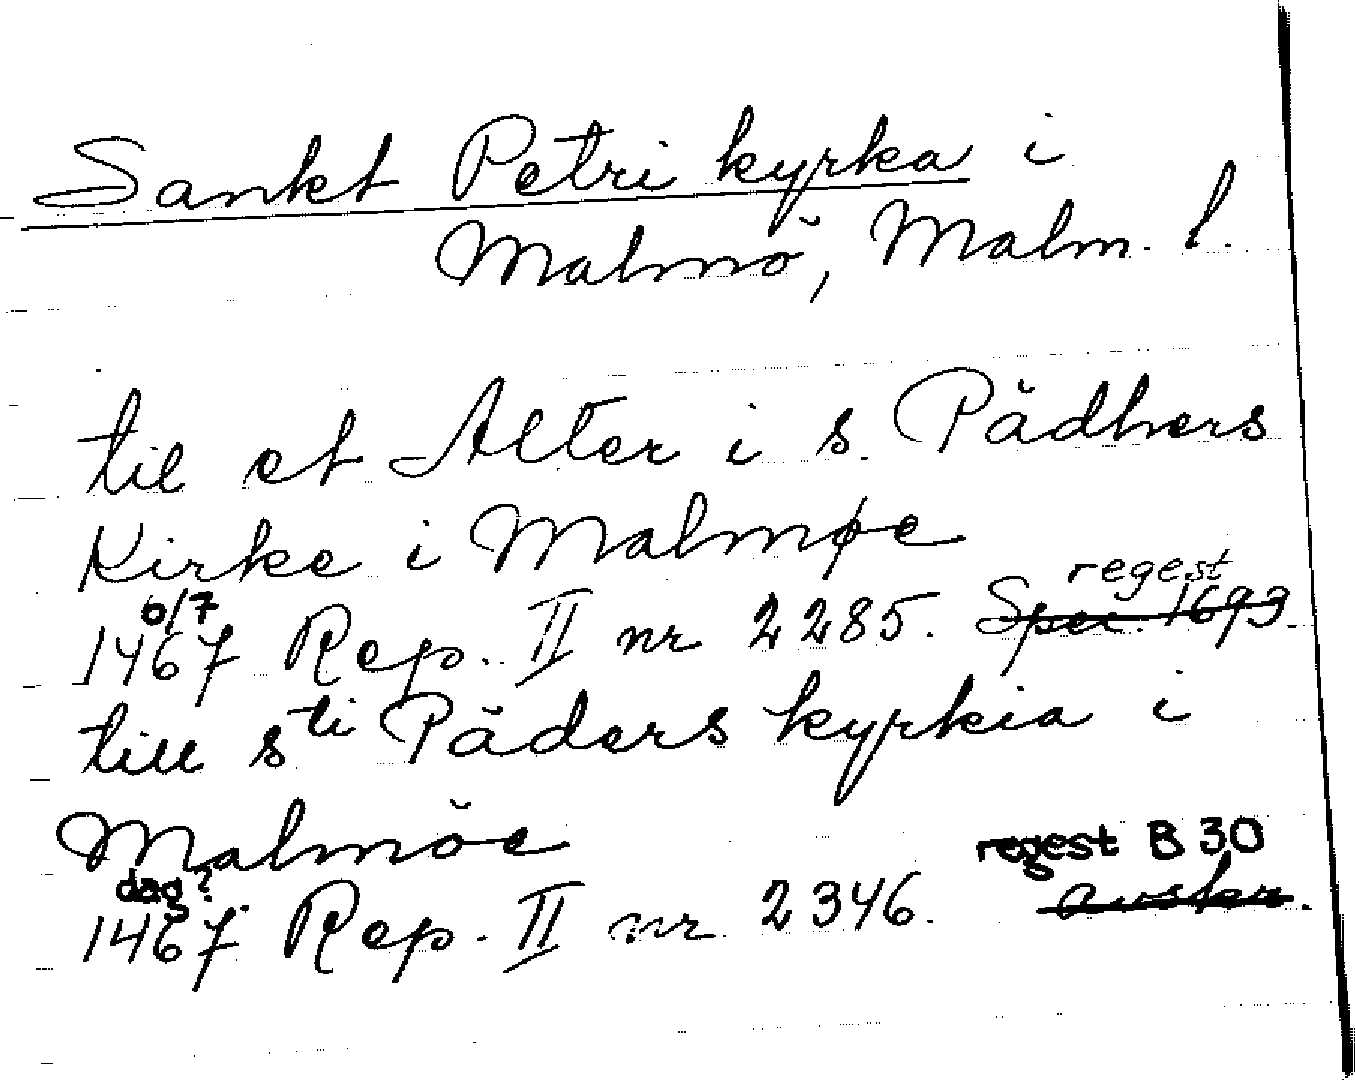 Sankt Petri kyrka i
Malmö, Malm. l.
til et Alter i s. Pädhers
Kirke i Malmøe
regest
6/7
1467 Rep. II nr 2285. Sper. 1693
till sti Päders kyrkia i
Malmöe
regest B 30
dag?
1467 Rep. II nr 2346. avskr.